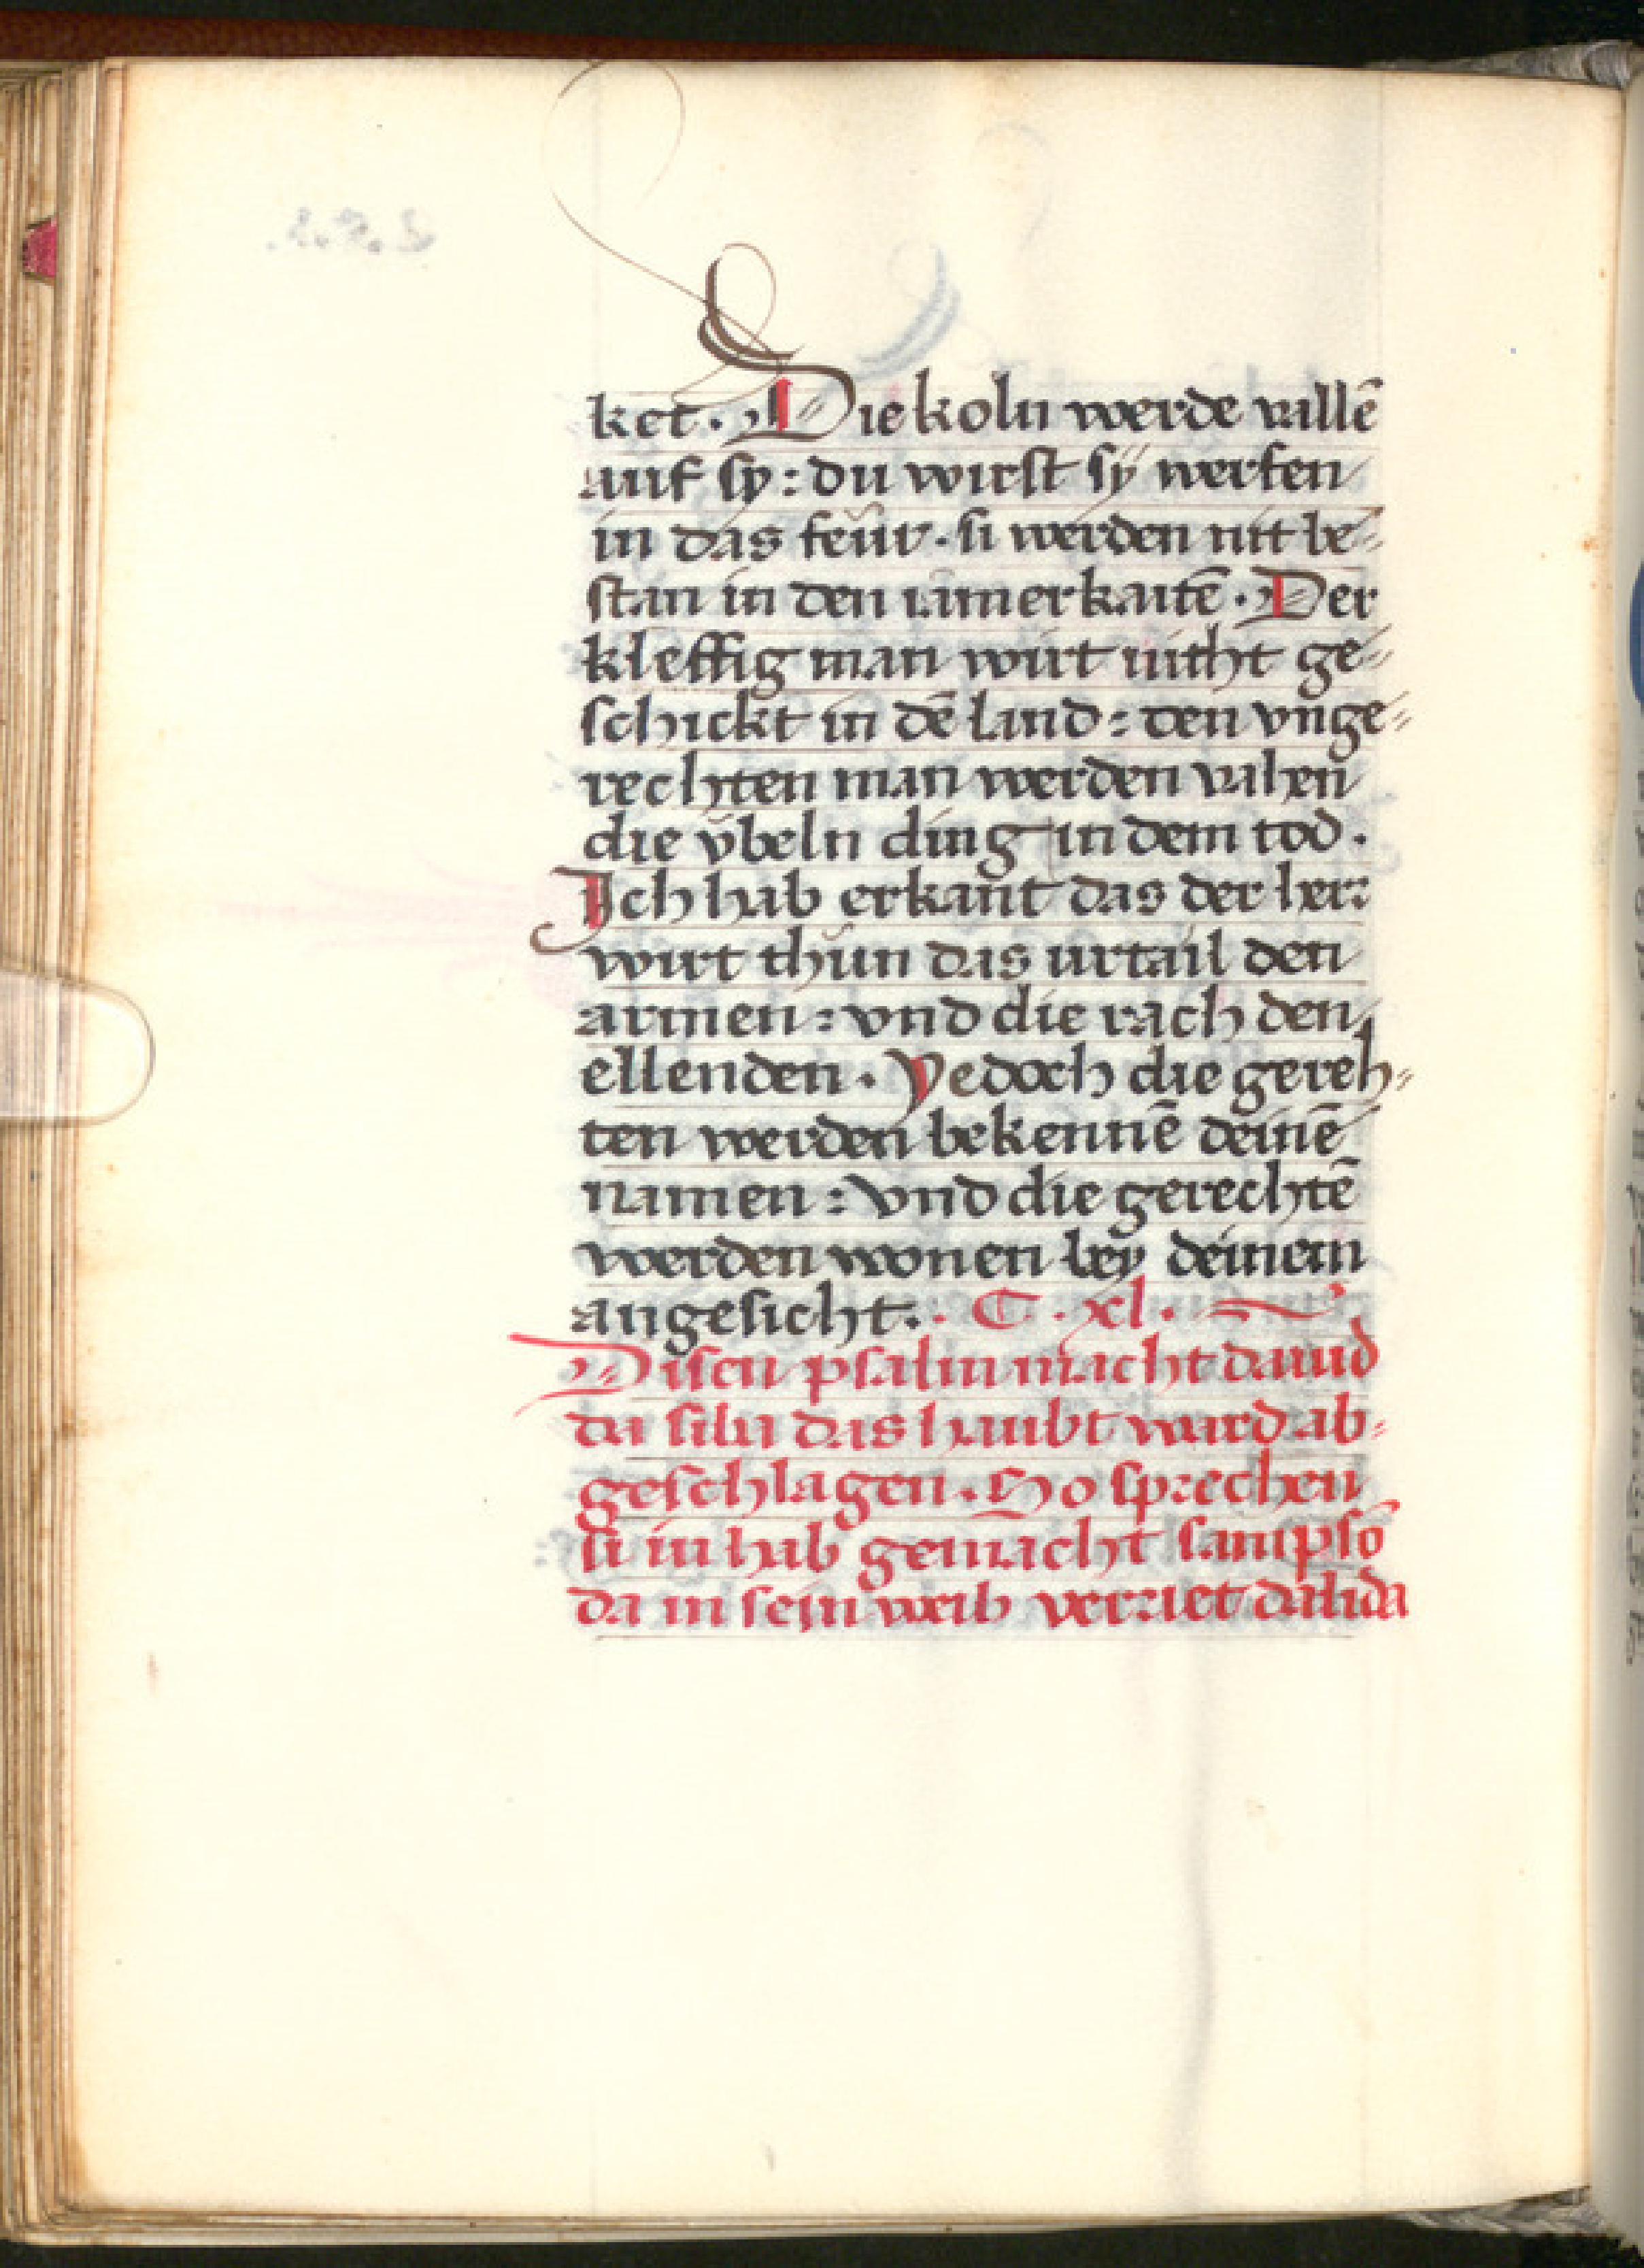 ket. Die koln werdē vallē
auf sy: du wirst sÿ werfen
in das feu̇r. si werden nit be⸗
stan in den iamerkaitē. Der
kleffig man wirt nitht ge⸗
schickt in dē land: den vnge⸗
rechten man werden vahen
die v̇beln ding in dem tod.
Ich hab erkant das der herr
wirt thu̇n das urtail den
armen: vnd die rach den
ellenden. Yedoch die gereh⸗
ten werden bekennē deinē
namen: vnd die gerechtē
werden wonen bey deinem
angesicht. C. xl.
Disen psalm macht dauid
da silu das haubt ward ab⸗
geschlagen. So sprechen
si in hab gemacht sampsō
da in sein weib verriet dalida